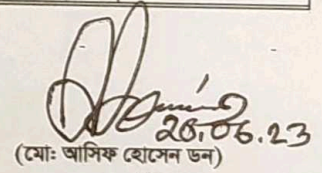 26.06.23
(মোঃ আসিফ হোসেন ডন)